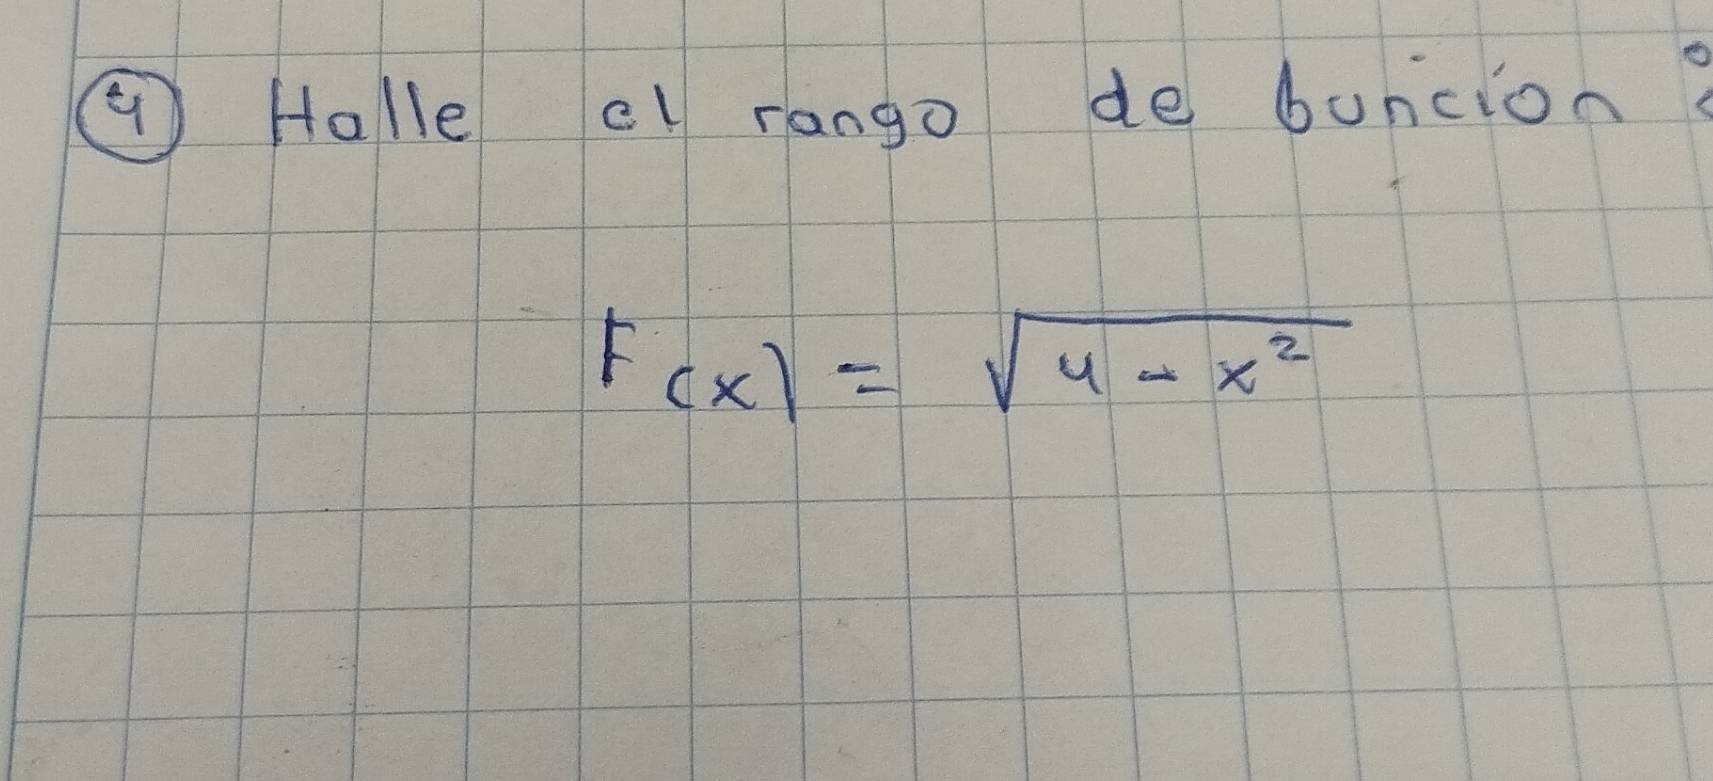 ④ Halle el rango de función:
F(x) = √(4 - x²)